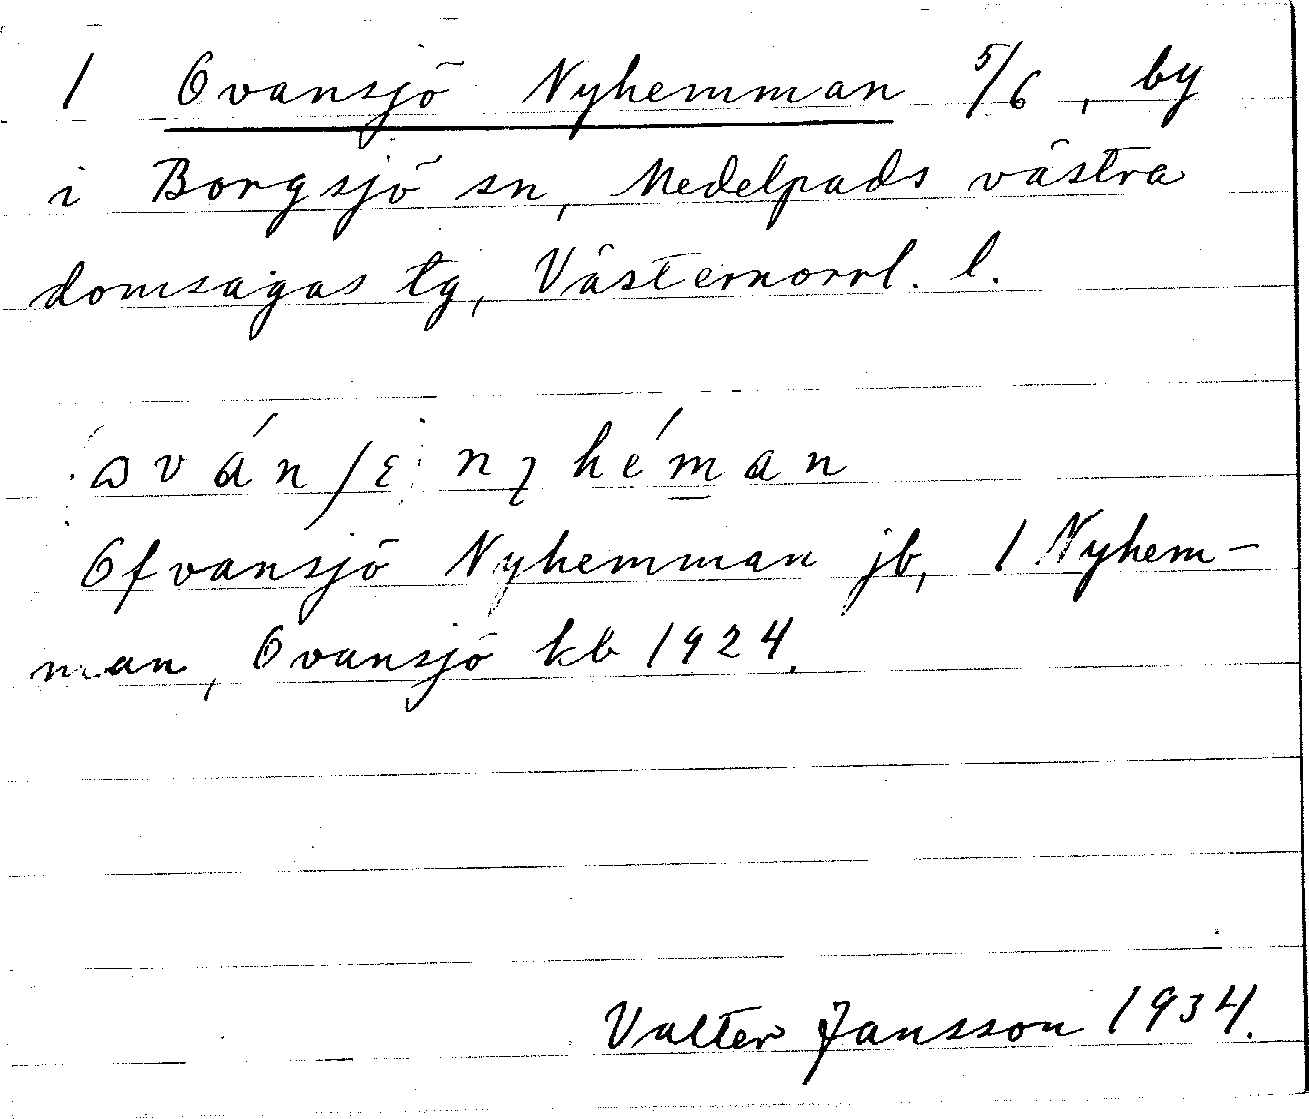 1 Ovansjö Nyhemman 5/6, by
i Borgsjö sn, Medelpads västra
domsagas tg, Västernorrl. l.
ɷván/ɛ nyhéman
Ofvansjö Nyhemman jb, 1 Nyhem-
man, Ovansjö kb 1924.
Valter Jansson 1934.